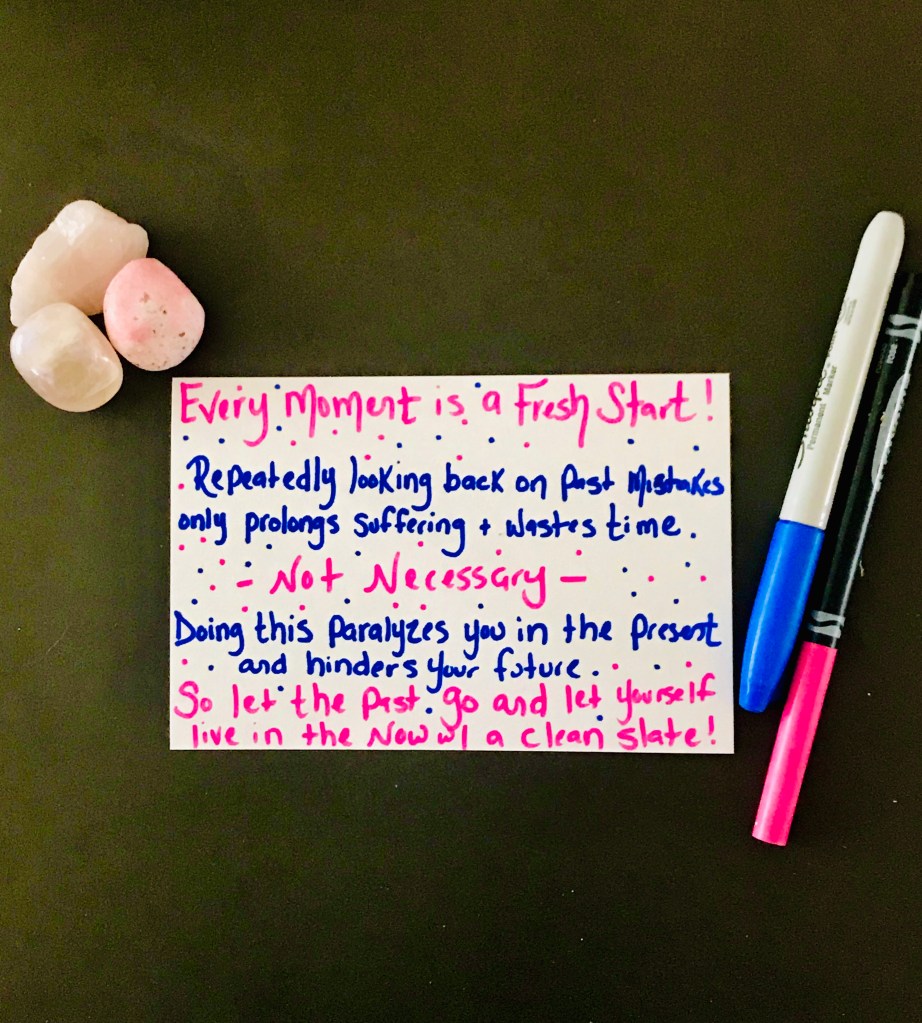 Every Moment is a Fresh Start!
Repeatedly looking back on past Mistakes
only prolongs suffering + wastes time.
- Not Necessary -
Doing this paralyzes you in the present
and hinders your future.
So let the past go and let yourself
live in the Now w/ a clean slate!
Sharpie
Permanent Marker